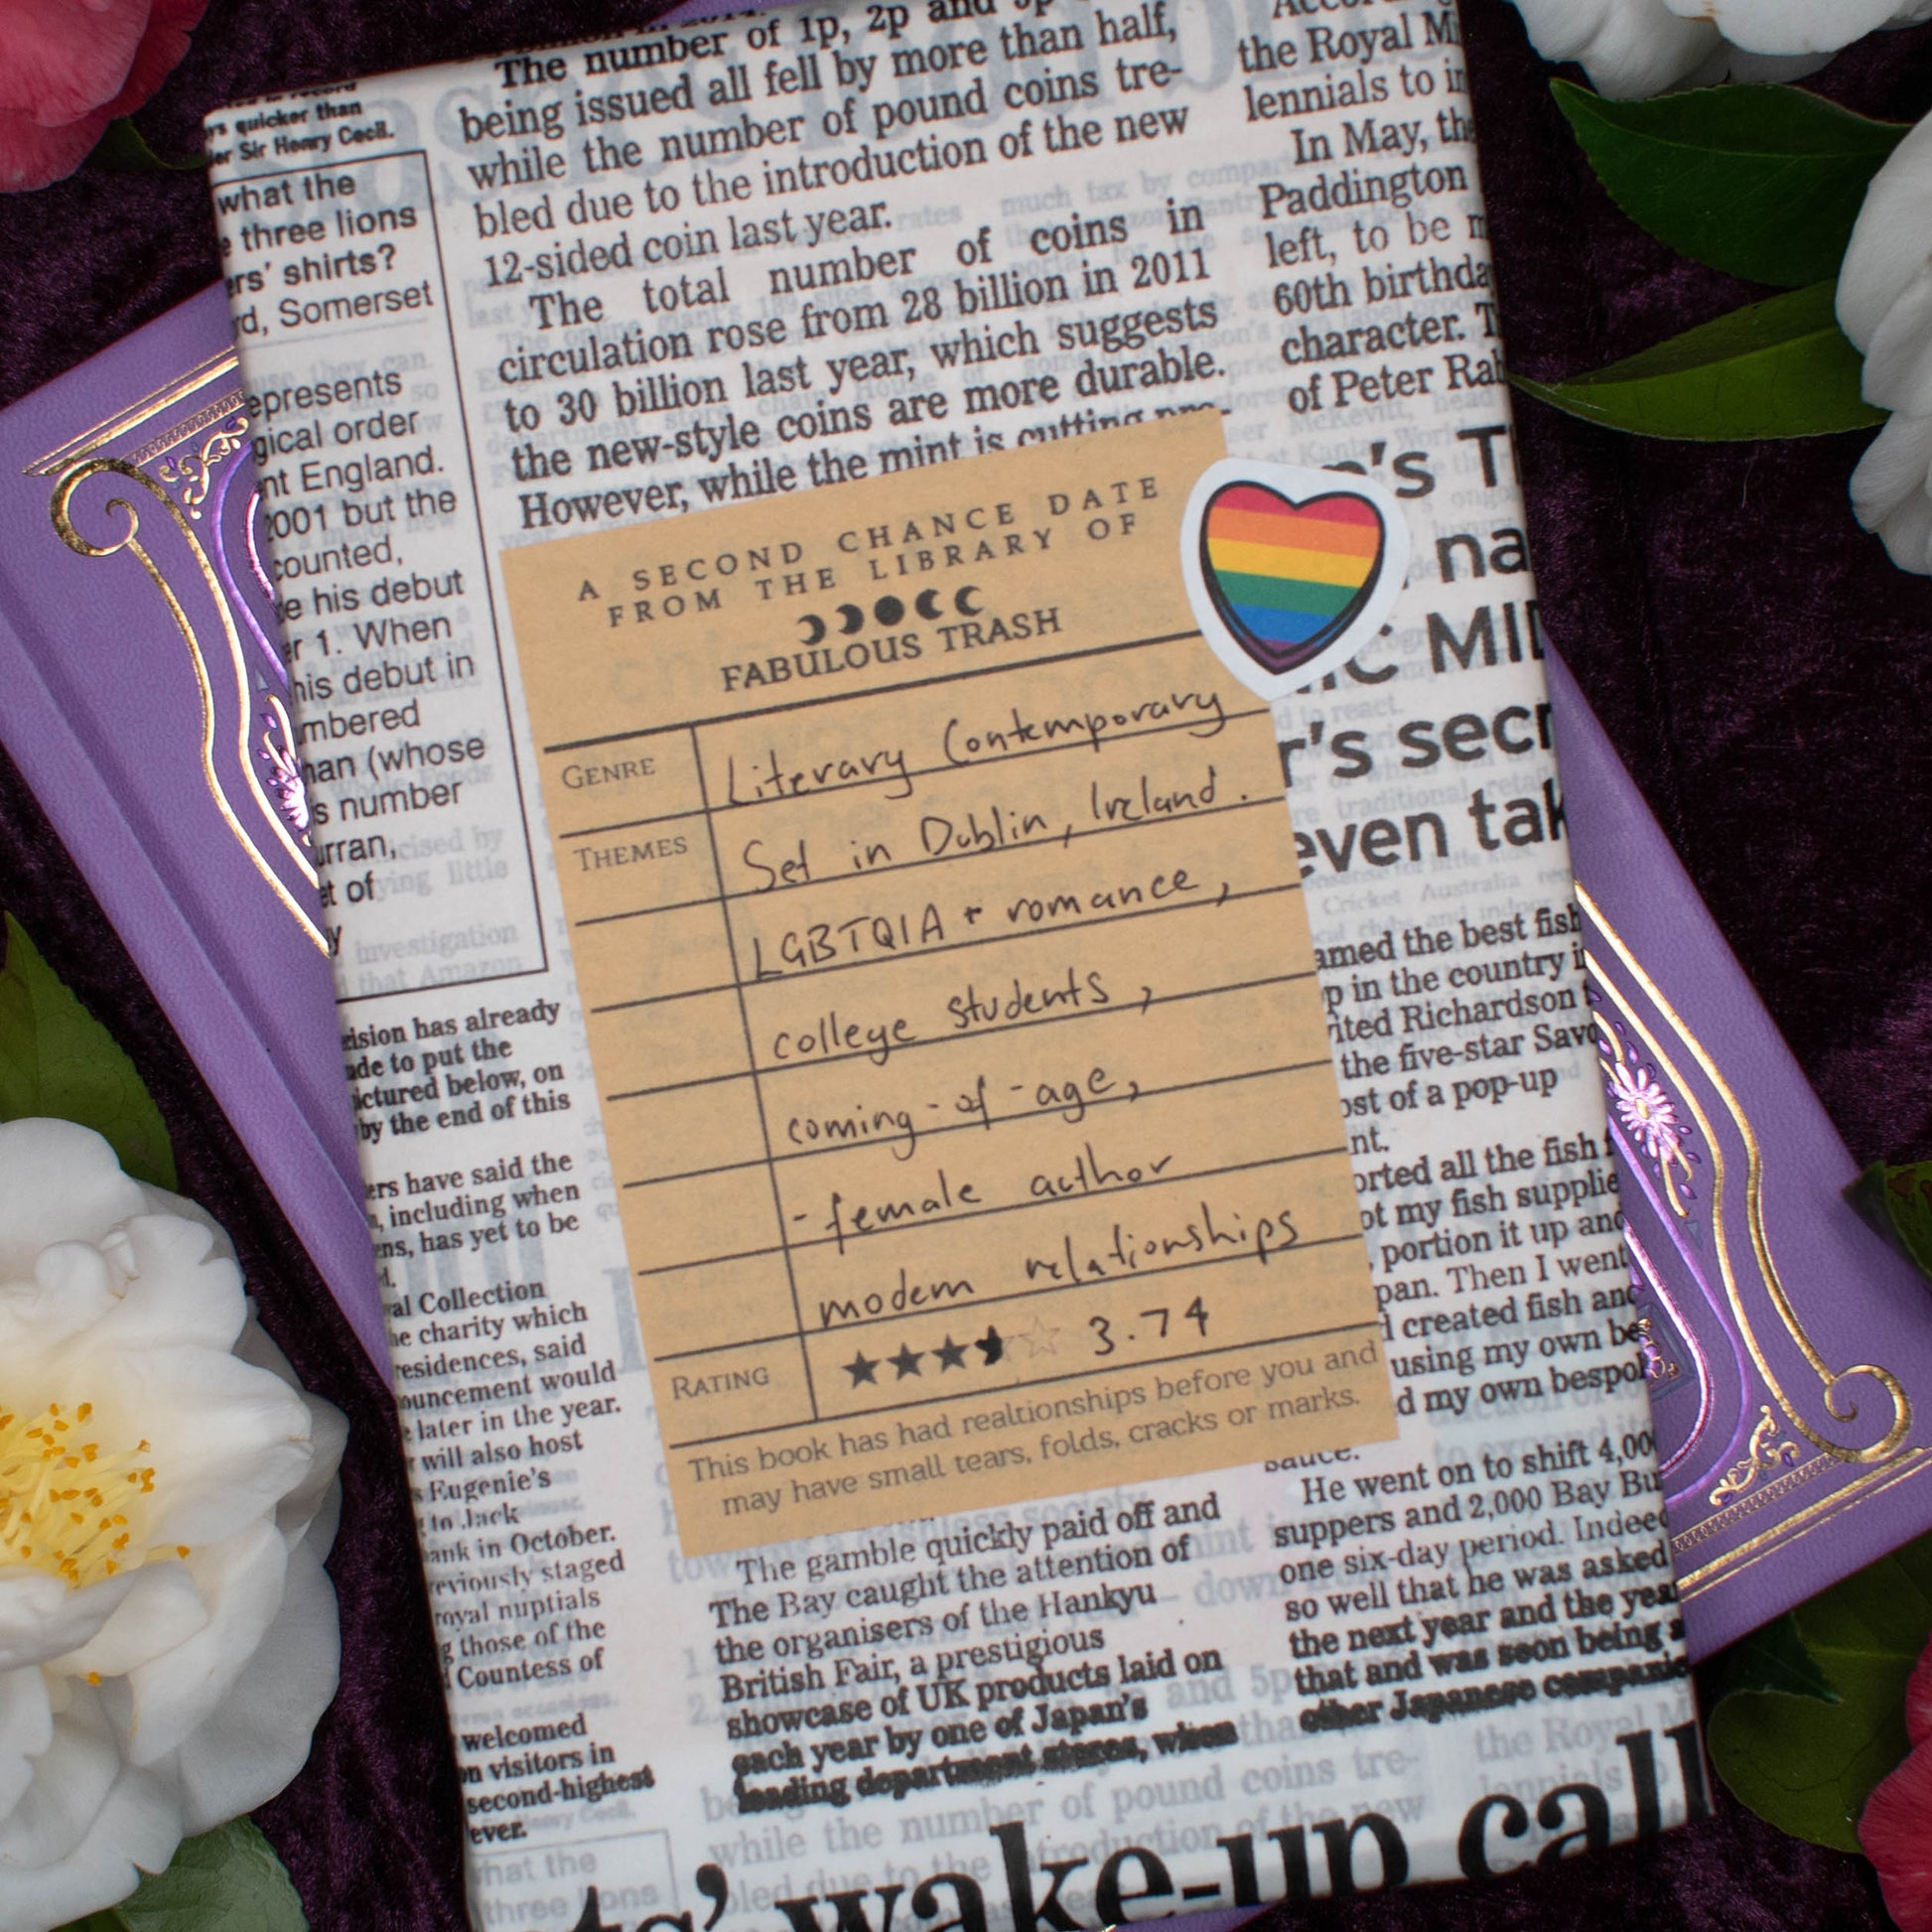 rs quicker than
er Sir Henry Cecil.
what the
three lions
ers' shirts?
rd, Somerset
epresents
gical order
nt England.
2001 but the
counted,
e his debut
er 1. When
his debut in
mbered
nan (whose
s number
urran,
et of
y
The number of 1p, 2p and 5p
being issued all fell by more than half,
while the number of pound coins tre-
bled due to the introduction of the new
12-sided coin last year.
The total number of coins in
circulation rose from 28 billion in 2011
to 30 billion last year, which suggests
the new-style coins are more durable.
However, while the mint is cutting pro-
the Royal M
lennials to in
In May, the
Paddington
left, to be m
60th birthda
character. T
of Peter Rab
's T
na
ic MI
r's secr
even tak
A SECOND CHANCE DATE
FROM THE LIBRARY OF
FABULOUS TRASH
GENRE Literary Contemporary
THEMES Set in Dublin, Ireland.
LGBTQIA + romance,
college students,
coming-of-age,
- female author
modern relationships
RATING ★★★ 3.74
This book has had realtionships before you and
may have small tears, folds, cracks or marks.
cision has already
ade to put the
ictured below, on
by the end of this
ers have said the
, including when
ens, has yet to be
d.
al Collection
he charity which
residences, said
ouncement would
later in the year.
will also host
s Eugenie's
to Jack
ank in October.
reviously staged
royal nuptials
g those of the
Countess of
welcomed
on visitors in
second-highest
ever.
amed the best fish
p in the country i
vited Richardson t
the five-star Savo
ost of a pop-up
nt.
orted all the fish
ot my fish supplie
, portion it up and
pan. Then I went
d created fish and
using my own be
d my own bespol
sauce.
He went on to shift 4,00
suppers and 2,000 Bay Bu
one six-day period. Indeed
so well that he was asked
the next year and the year
that and was soon being a
other Japanese companie
The gamble quickly paid off and
The Bay caught the attention of
the organisers of the Hankyu
British Fair, a prestigious
showcase of UK products laid on
each year by one of Japan's
leading department stores, when
ts' wake-up call